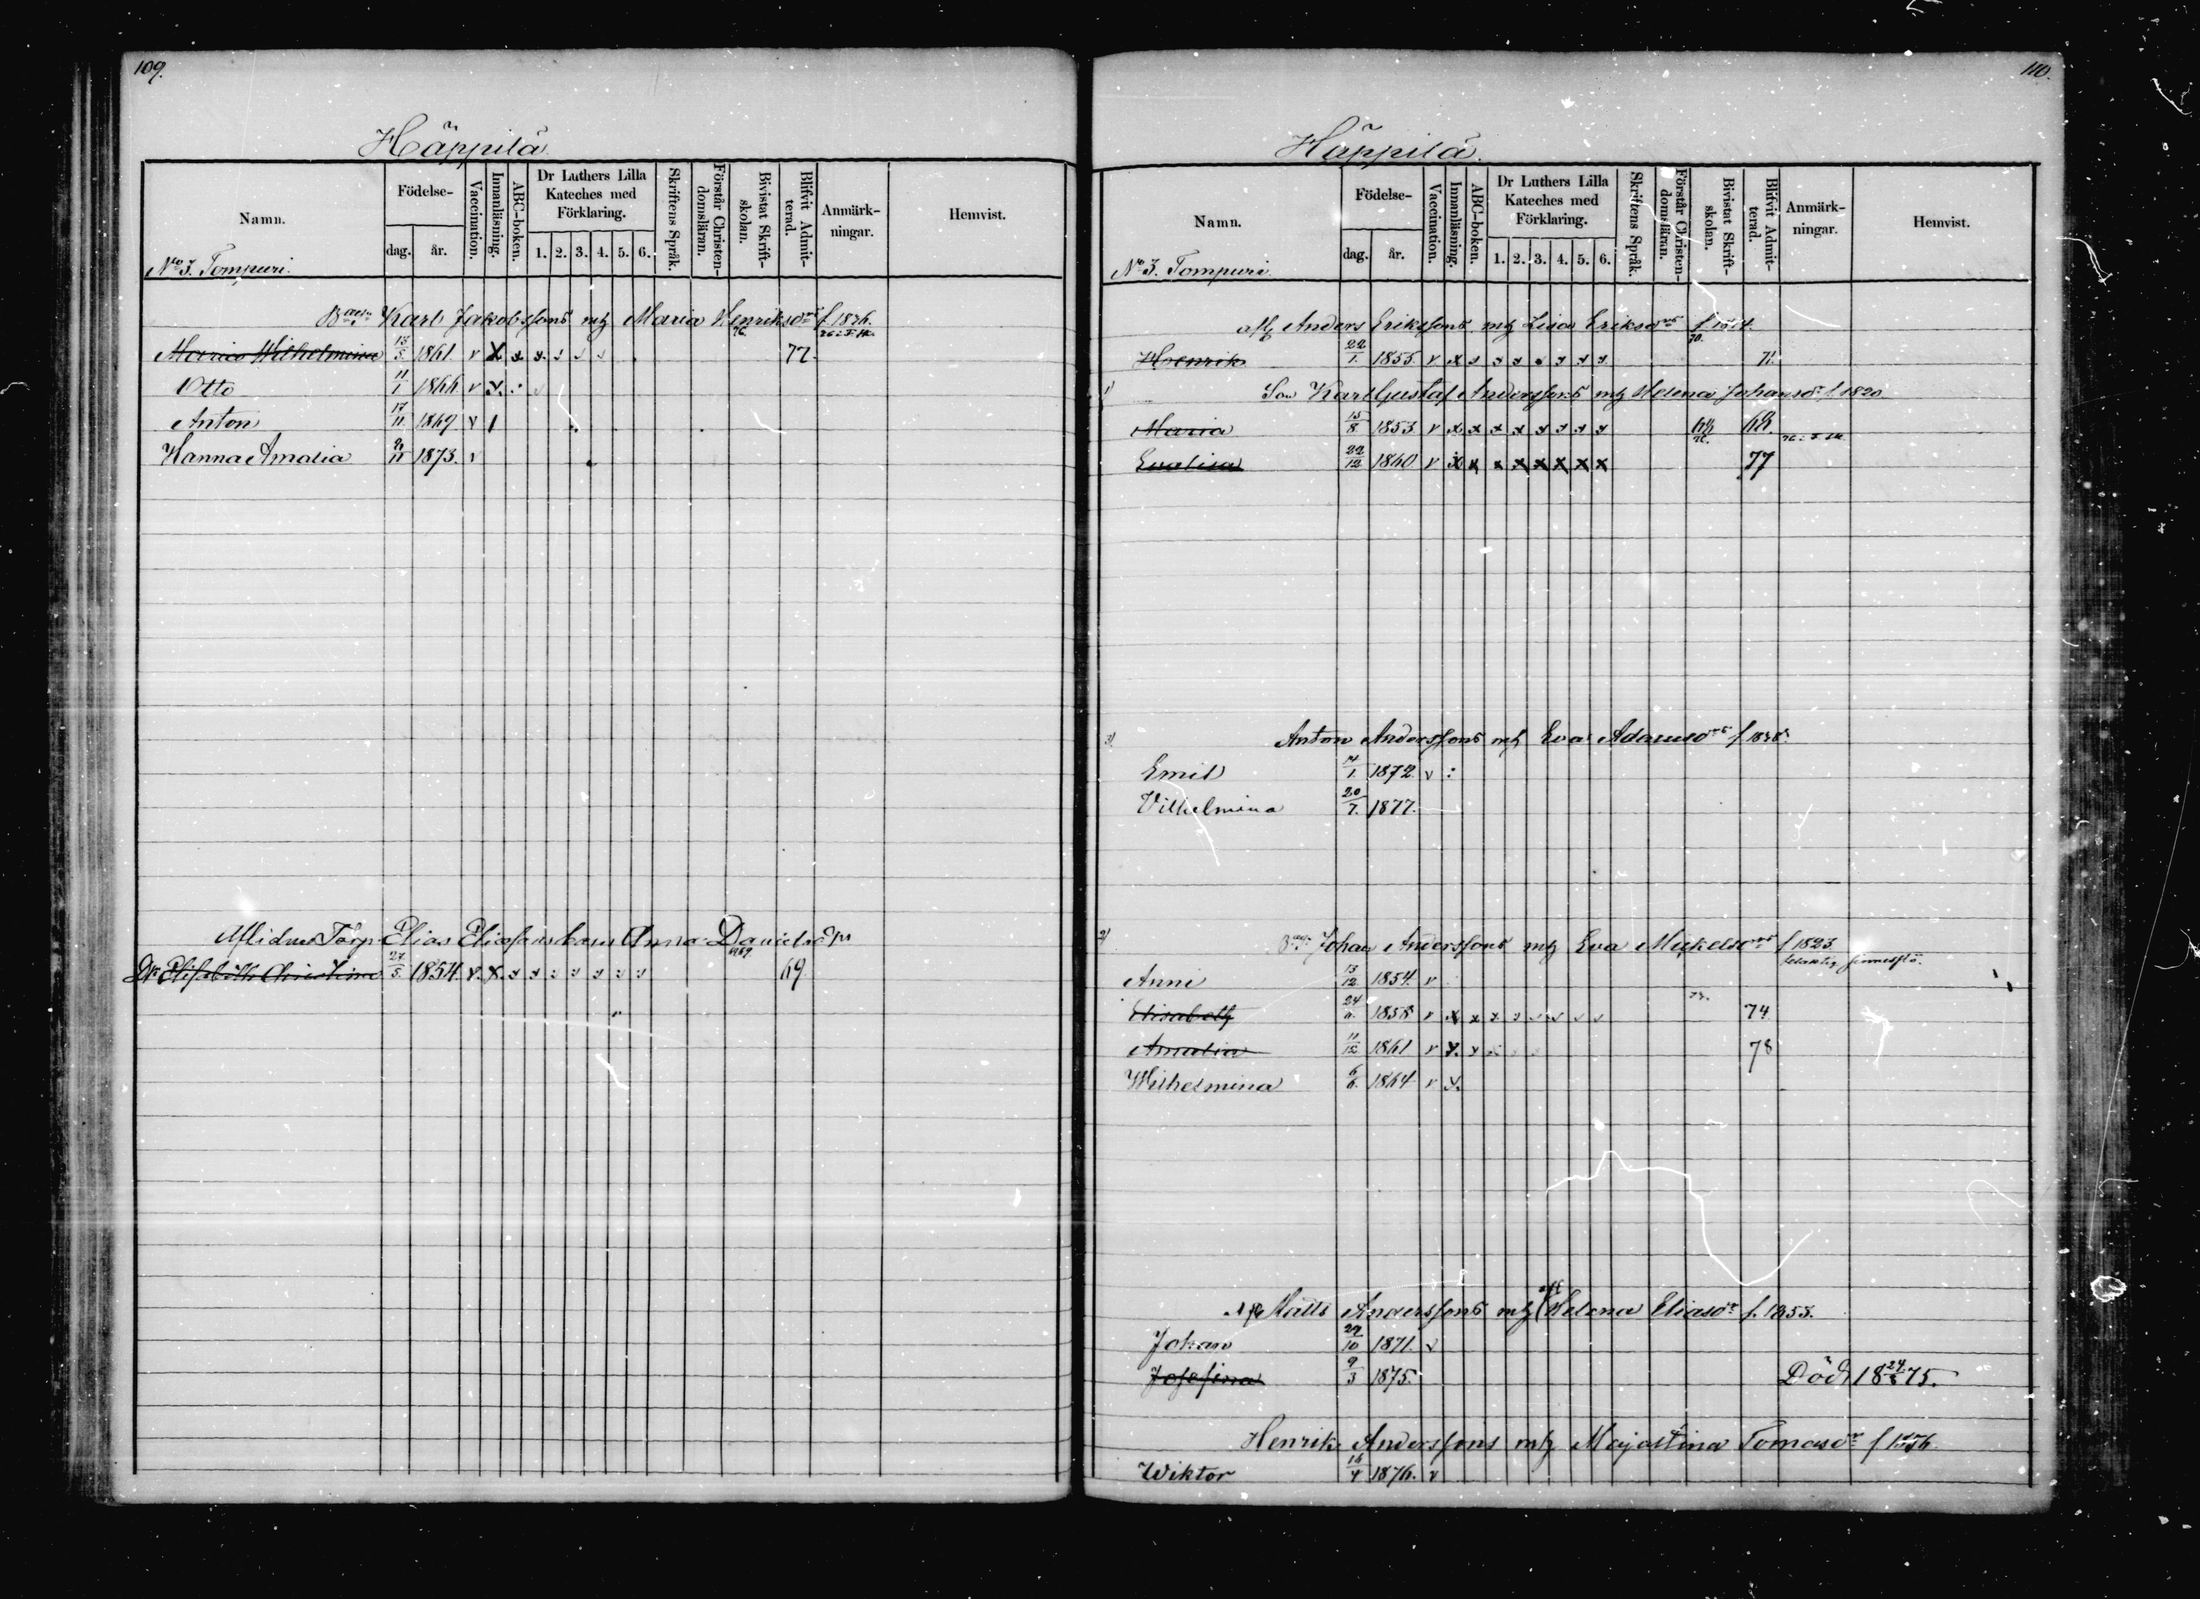 109.
Häppilä.
Namn.
Födelse-
dag. år.
Vaccination.
Innanläsning.
ABC-boken.
Dr Luthers Lilla Kateches med Förklaring.
1. 2. 3. 4. 5. 6.
Skriftens Språk.
Förstår Christen-domsläran.
Bivistat Skrift-skolan.
Blifvit Admit-terad.
Anmärk-ningar.
Hemvist.
No 3. Tompuri.
Karl Jakobssons mtz Maria Henriksdr f. 1836.
Maria Wilhelmina 13/5 1861. v x x x 77.
Otto 11/1 1866 v x :
Anton 17/11 1869 v
Hanna Amalia 1873. v
Aflidne Torp. Elias Eliassons Anna Danielsdrs
Elisabeth Christina 27/5 1854. v. x. 69.
110.
Häppilä.
Namn.
Födelse-
dag. år.
Vaccination.
Innanläsning.
ABC-boken.
Dr Luthers Lilla Kateches med Förklaring.
1. 2. 3. 4. 5. 6.
Skriftens Språk.
Förstår Christen-domsläran.
Bivistat Skrift-skolan.
Blifvit Admit-terad.
Anmärk-ningar.
Hemvist.
No 3. Tompuri.
Anders Erikssons mtz Lisa Eriksdrs
Henrik 22/1. 1855 v x x x x x x x x 71.
1) Son Karl Gustaf Anderssons mtz Helena Johansdr f. 1820
Maria 15/8 1853. v x x x x x x x x 68.
Evalisa 22/12 1860. v x x x x x x x x 77
3) Anton Anderssons mtz Eva Adamsdrs
Emil 1872. v :
Vilhelmina 20/7. 1877.
2) Johan Anderssons mtz Eva Mickelsdrs f 1823
Anni 13/12 1854. v
Elisabeth 1858 v x x x 74
Amalia 11/12 1861 v x. 78
Wilhelmina 6/6. 1864 v x.
Matts Anderssons mtz Helena Eliasdr f. 1853.
Johan 29/10 1871. v
Josefina 9/3 1875. Död 18 75.
Henrik Anderssons mtz Majastina Tomasdr
Wiktor 1876. v